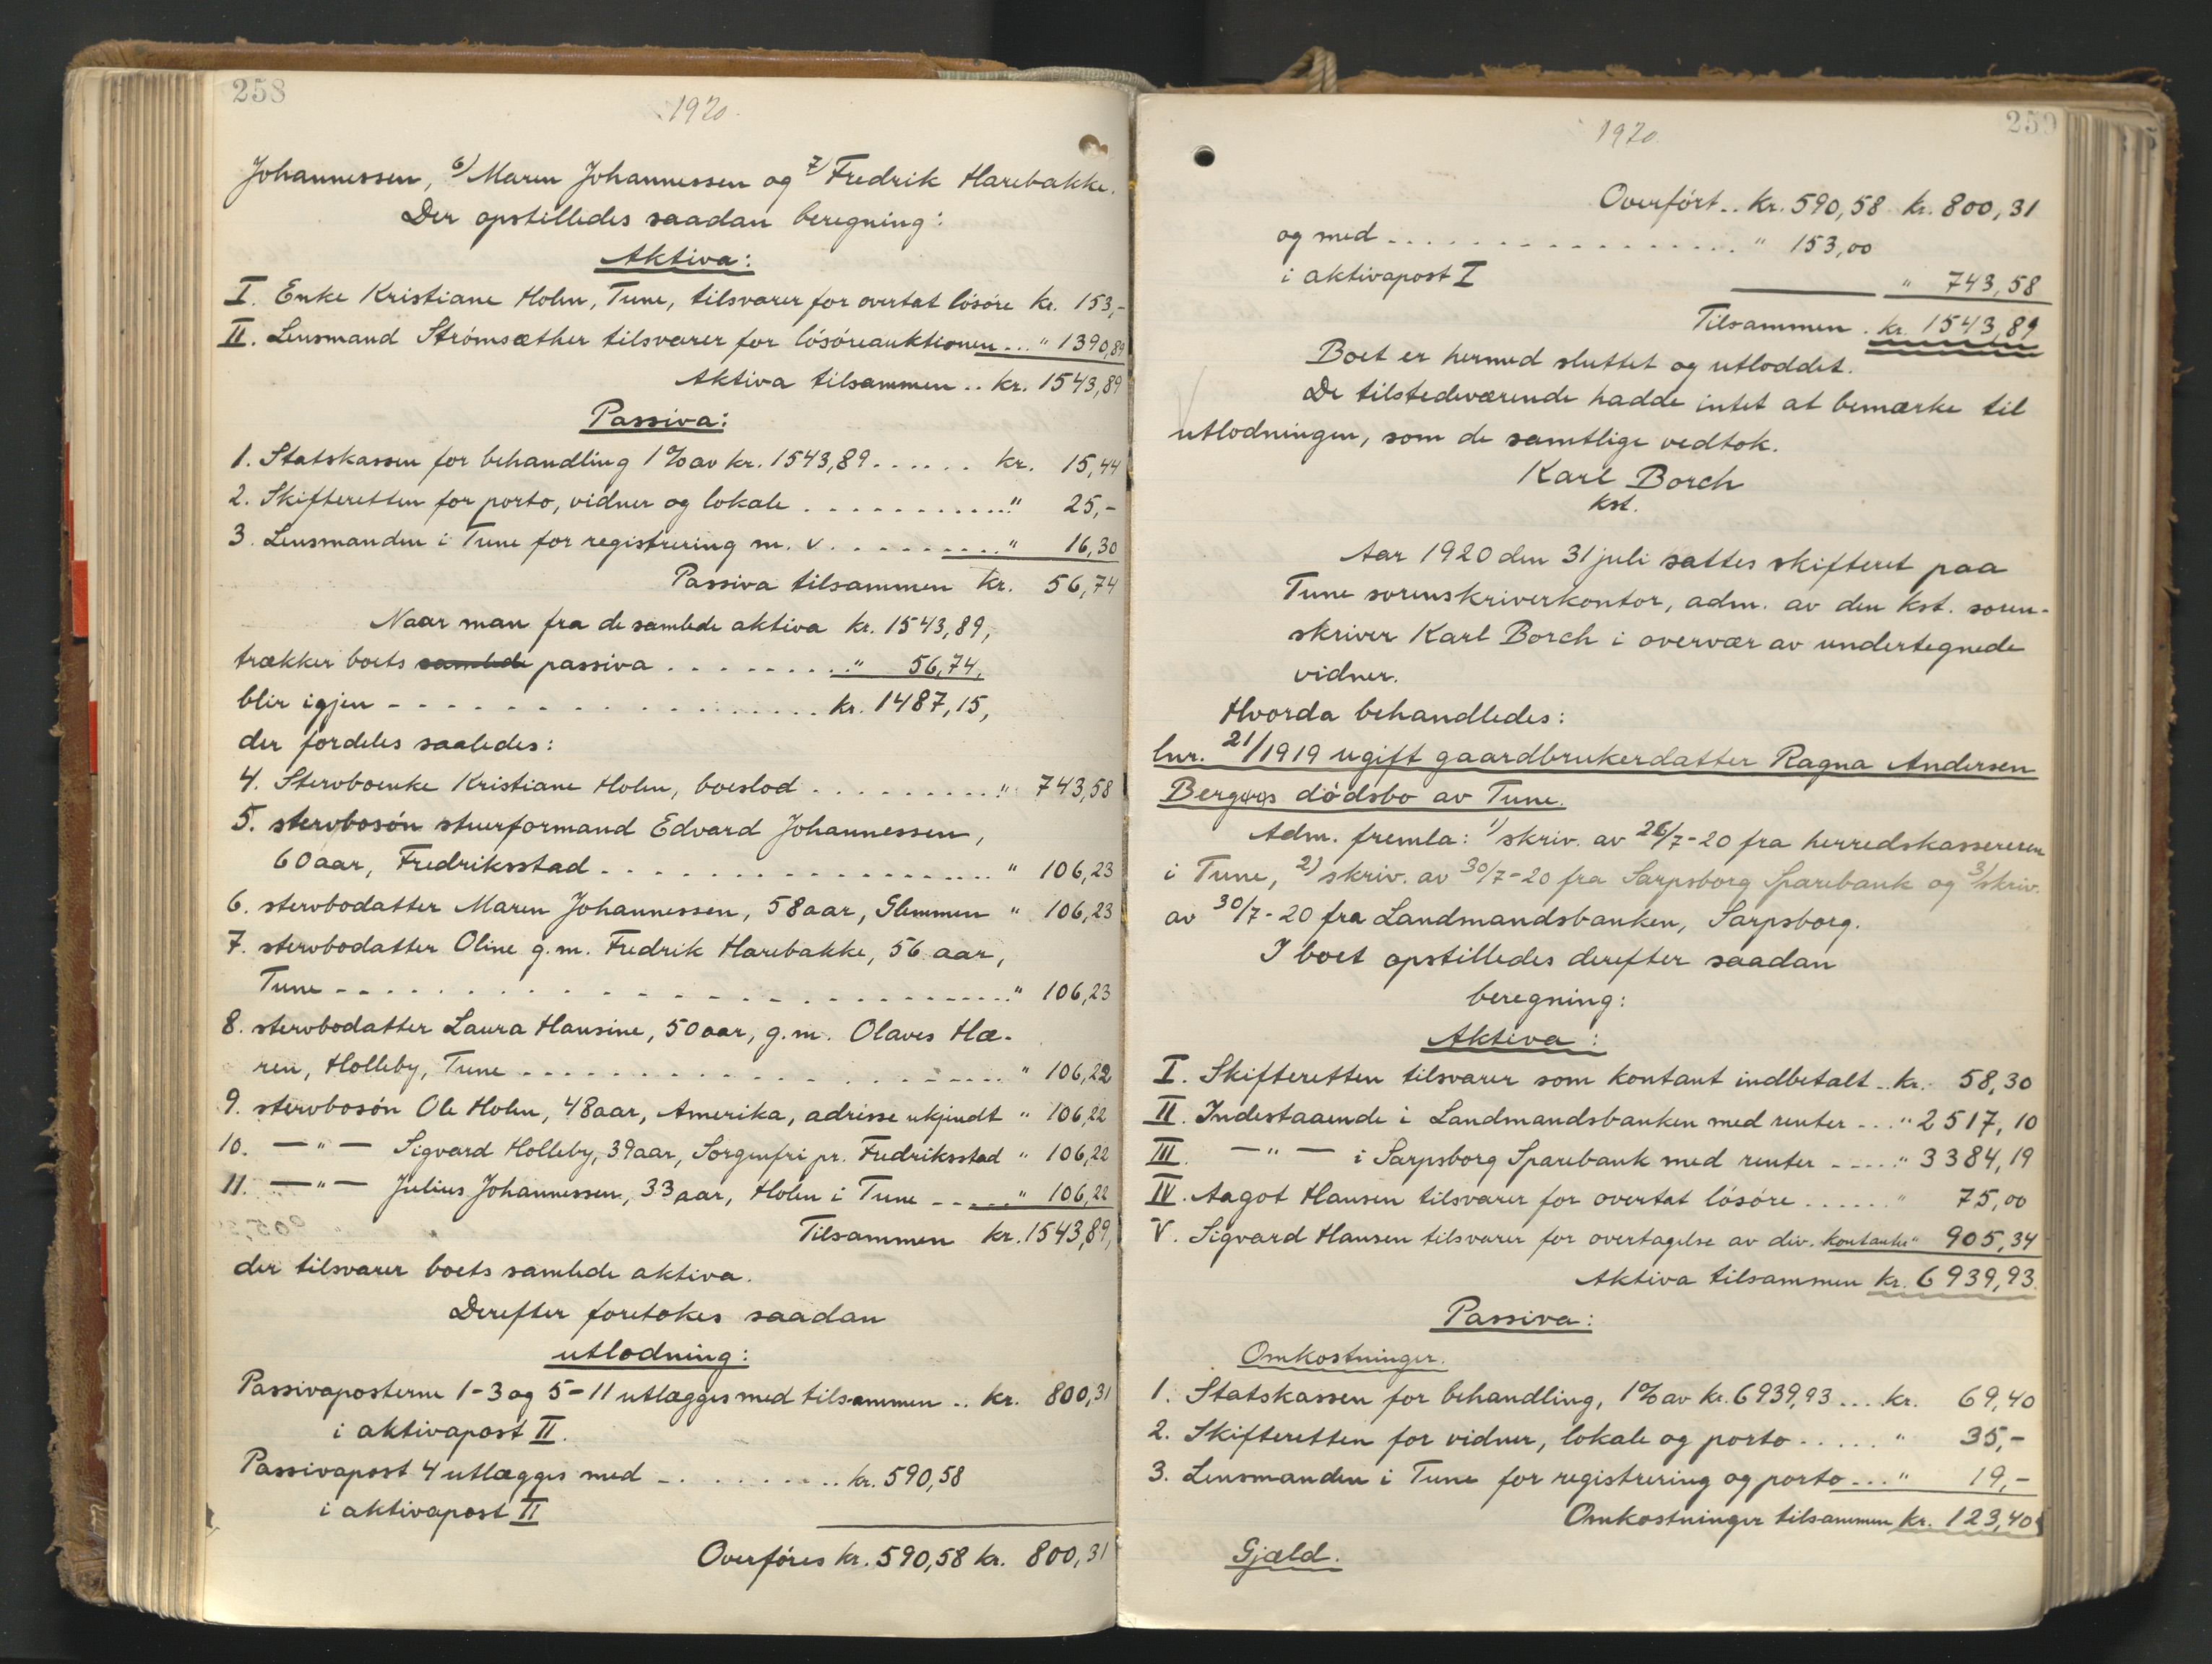 258
1920.
Johannessen, 6) Maren Johannessen og 7) Fredrik Harebakke.
Der opstilledes saadan beregning:
Aktiva:
I. Enke Kristiane Holm, Tune, tilsvarer for overtat løsøre kr. 153,-
II. Lensmand Strømsæther tilsvarer for løsøreauktionen ... " 1390,89
Aktiva tilsammen .. kr. 1543,89
Passiva:
1. Statskassen for behandling 1% av kr. 1543,89 ...... kr. 15,44
2. Skifteretten for porto, vidner og lokale ............ " 25,-
3. Lensmanden i Tune for registrering m. v. .......... " 16,30
Passiva tilsammen kr. 56,74
Naar man fra de samlede aktiva kr. 1543,89,
trækker boets samlede passiva ......... " 56,74,
blir igjen - - - - - - - - - - ..... kr. 1487,15,
der fordeles saaledes:
4. Stervboenke Kristiane Holm, boeslod .......... " 743,58
5. stervbosøn stuerformand Edvard Johannessen,
60 aar, Fredriksstad - - - - - - - - - - - ..... " 106,23
6. stervbodatter Maren Johannessen, 58 aar, Glemmen " 106,23
7. stervbodatter Oline g.m. Fredrik Harebakke, 56 aar,
Tune - - - - - - - - - - - - - - - - ..... " 106,23
8. stervbodatter Laura Hansine, 50 aar, g.m. Olaves Hæ-
ren, Holleby, Tune - - - - - - - - - - - ..... " 106,22
9. stervbosøn Ole Holm, 48 aar, Amerika, adrisse ukjendt " 106,22
10. — " — Sigvard Holleby, 39 aar, Sorgenfri pr. Fredriksstad " 106,22
11. — " — Julius Johannessen, 33 aar, Holm i Tune - ..... " 106,22
Tilsammen kr. 1543,89,
der tilsvarer boets samlede aktiva.
Derefter foretokes saadan
utlodning:
Passivaposterne 1-3 og 5-11 utlægges med tilsammen .. kr. 800,31
i aktivapost II.
Passivapost 4 utlægges med - ......... kr. 590,58
i aktivapost II
Overføres kr. 590,58 kr. 800,31
259
1920.
Overført .. kr. 590,58 kr. 800,31
og med - - - - - - - - - - - - - - - " 153,00
i aktivapost I
" 743,58
Tilsammen . kr. 1543,89
Boet er hermed sluttet og utloddet.
De tilstedeværende hadde intet at bemærke til
utlodningen, som de samtlige vedtok.
Karl Borch
kst.
Aar 1920 den 31 juli sattes skifteret paa
Tune sorenskriverkontor, adm. av den kst. soren-
skriver Karl Borch i overvær av undertegnede
vidner.
Hvorda behandledes:
lnr. 21/1919 ugift gaardbrukerdatter Ragna Andersen
Bergs dødsbo av Tune.
Adm. fremla: 1) skriv. av 26/7-20 fra herredskassereren
i Tune, 2) skriv. av 30/7-20 fra Sarpsborg Sparebank og 3) skriv.
av 30/7-20 fra Landmandsbanken, Sarpsborg.
I boet opstilledes derefter saadan
beregning:
Aktiva:
I. Skifteretten tilsvarer som kontant indbetalt .. kr. 58,30
II. Indestaaende i Landmandsbanken med renter ... " 2517,10
III. — " — i Sarpsborg Sparebank med renter ..... " 3384,19
IV. Aagot Hansen tilsvarer for overtat løsøre ...... " 75,00
V. Sigvard Hansen tilsvarer for overtagelse av div. kontanter " 905,34
Aktiva tilsammen kr. 6939,93.
Passiva:
Omkostninger.
1. Statskassen for behandling, 1% av kr. 6939,93 .... kr. 69,40
2. Skifteretten for vidner, lokale og porto ...... " 35,-
3. Lensmanden i Tune for registrering og porto ... " 19,-
Omkostninger tilsammen kr. 123,40
Gjæld.